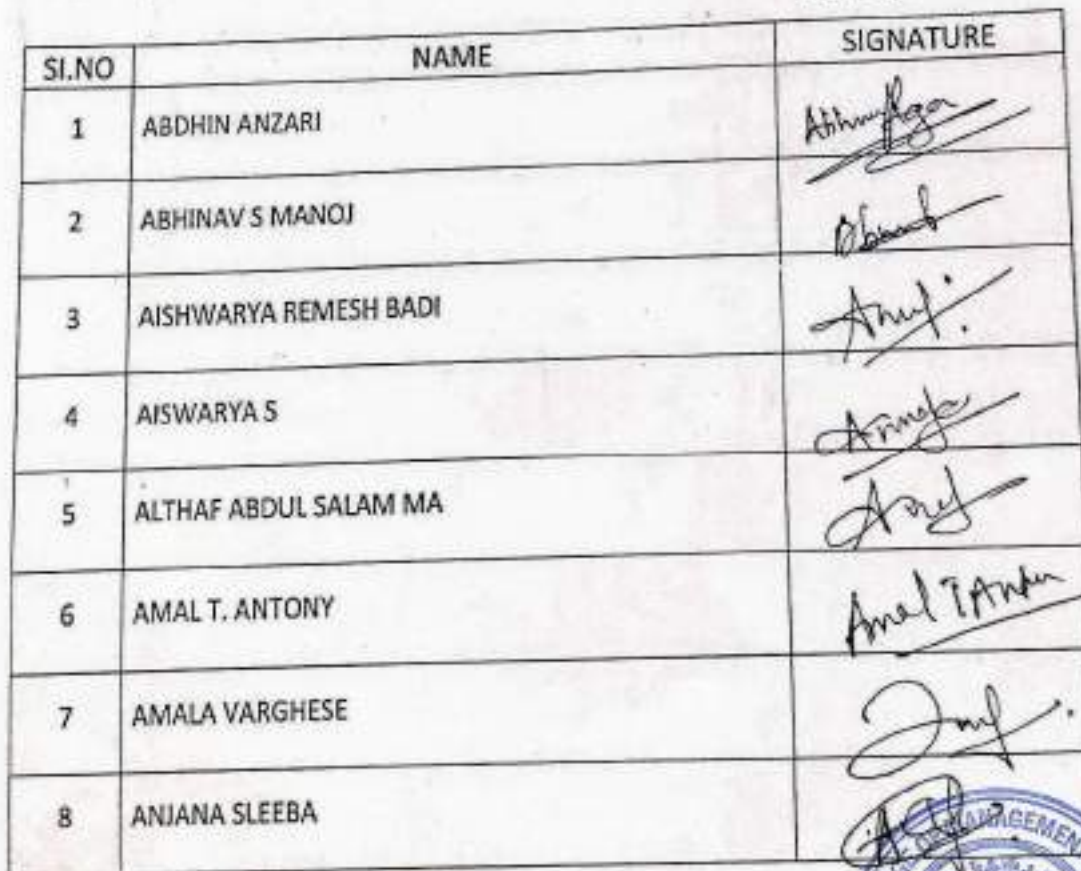 SI.NO NAME SIGNATURE
1 ABDHIN ANZARI
2 ABHINAV S MANOJ
3 AISHWARYA REMESH BADI
4 AISWARYA S
5 ALTHAF ABDUL SALAM MA
6 AMAL T. ANTONY Amal T Antony
7 AMALA VARGHESE
8 ANJANA SLEEBA
MANAGEMEN